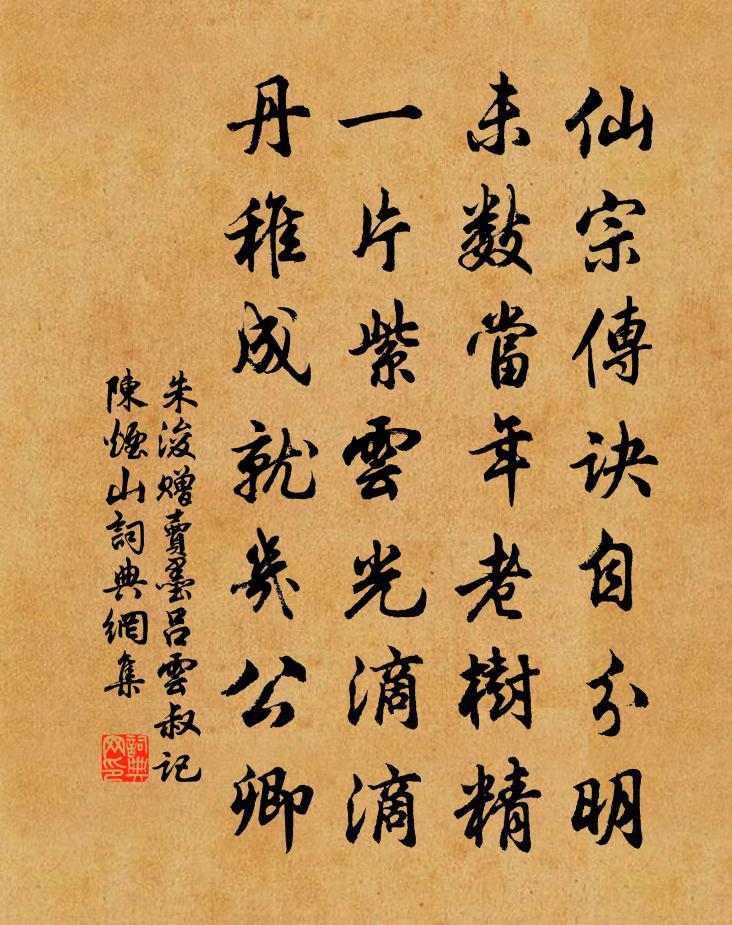 仙宗傳訣自分明
未數當年老樹精
一片紫雲光滴滴
丹稚成就幾公卿
朱浚赠賣墨吕雲叔記
陳煙山詞典網集
詞典
网印